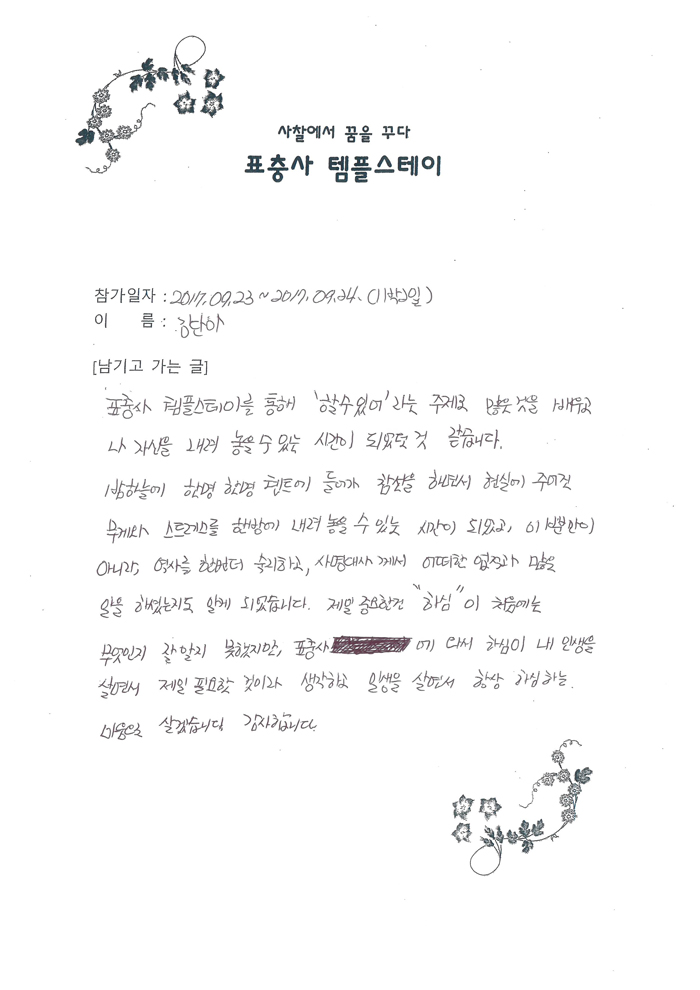 사찰에서 꿈을 꾸다
표충사 템플스테이
참가일자 : 2017.09.23 ~ 2017.09.24. (1박2일)
이 름 : 강단아
[남기고 가는 글]
표충사 템플스테이를 통해 '할수있어' 라는 주제로 많은 것을 배우고
나 자신을 내려 놓을 수 있는 시간이 되었던 것 같습니다.
밤하늘에 한명 한명 텐트에 들어가 참선을 하면서 현실에 주어진
무게와 스트레스를 한방에 내려 놓을 수 있는 시간이 되었고, 이 뿐만이
아니라, 역사를 한번더 숙지하고, 사명대사 께서 어떠한 업적과 많은
일을 하셨는지도 알게 되었습니다. 제일 중요한건 "하심"이 처음에는
무엇인지 잘 알지 못했지만, 표충사 에 와서 하심이 내 인생을
살면서 제일 필요한 것이라 생각하고 일생을 살면서 항상 하심하는
마음으로 살겠습니다. 감사합니다.